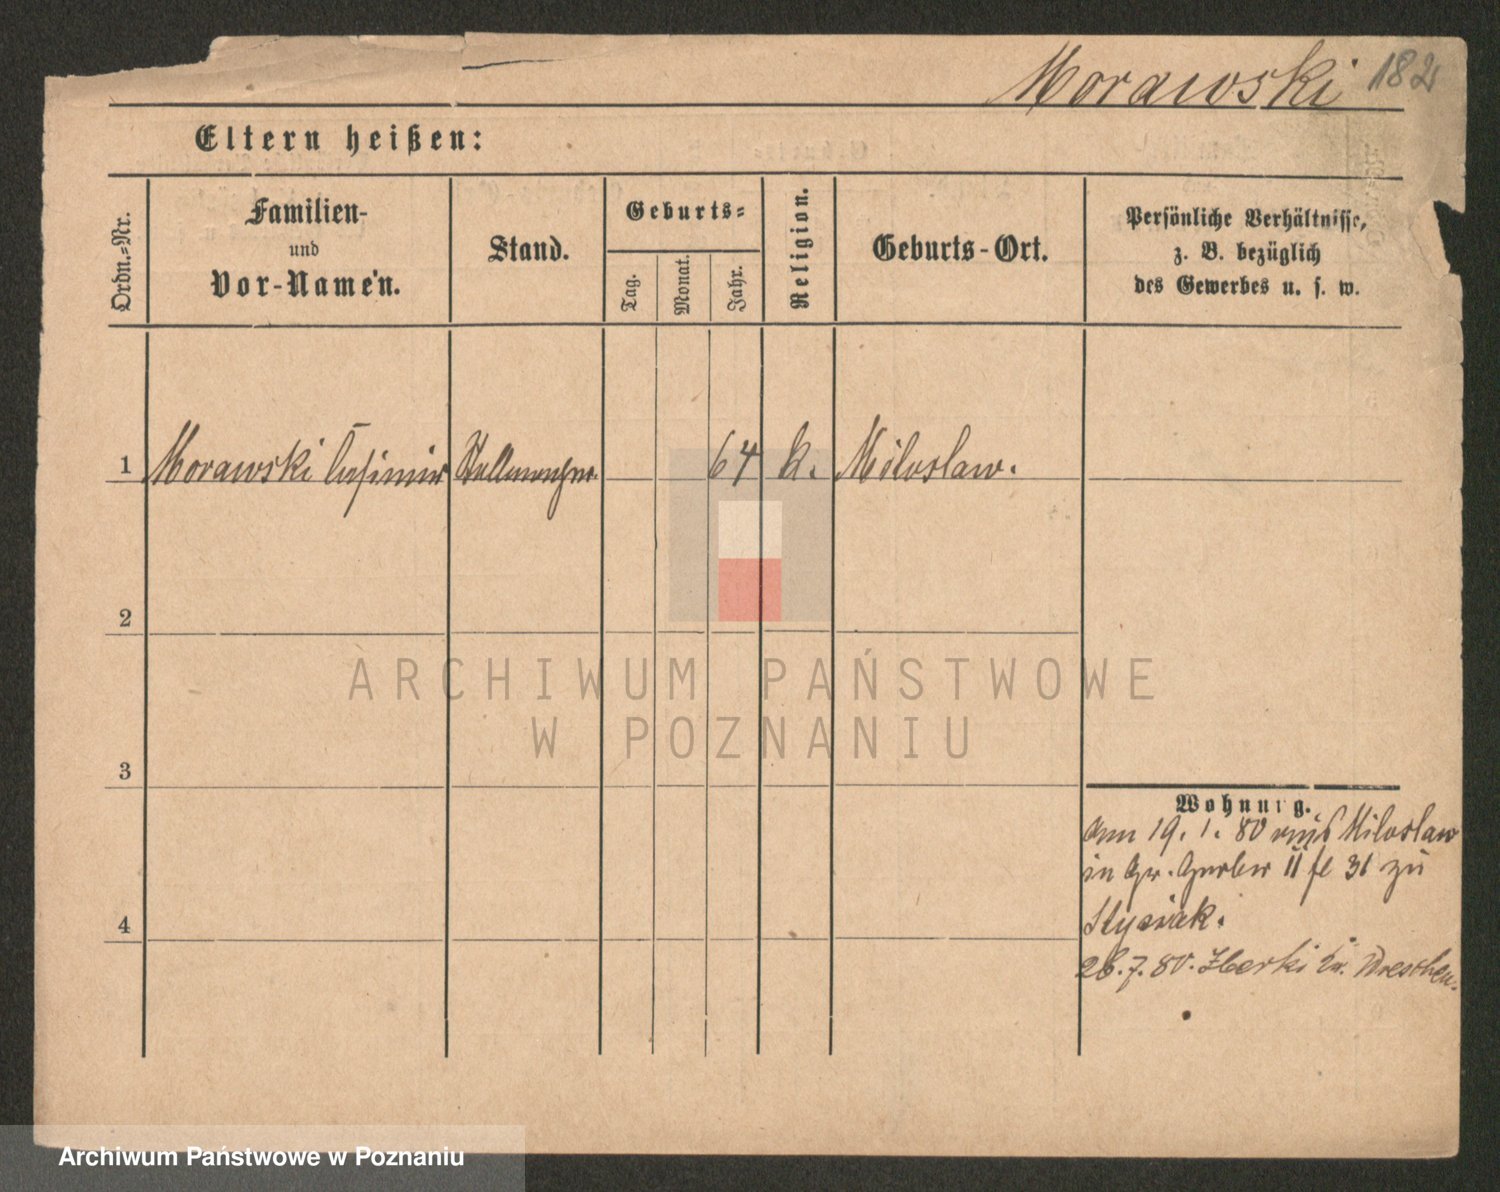 Morawski 182
Eltern heißen:
Ordn.-Nr.
Familien-
und
Vor-Namen.
Stand.
Geburts-
Tag.
Monat.
Jahr.
Religion.
Geburts-Ort.
Persönliche Verhältnisse,
z. B. bezüglich
des Gewerbes u. s. w.
1 Morawski Casimir 64 k. Miloslaw.
2
ARCHIWUM PAŃSTWOWE
W POZNANIU
3
Wohnung.
19. 1. 80 aus Miloslaw
in Gr. Gerber 11 31 zu
4
28.7.80. Wreschen.
Archiwum Państwowe w Poznaniu